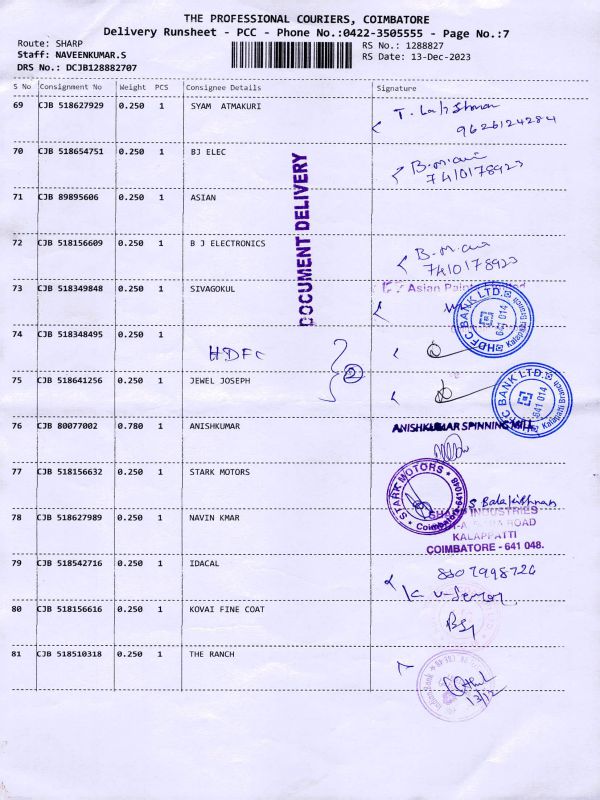 THE PROFESSIONAL COURIERS, COIMBATORE
Delivery Runsheet - PCC - Phone No.:0422-3505555 - Page No.:7
Route: SHARP
Staff: NAVEENKUMAR.S
DRS No.: DCJB128882707
RS No.: 1288827
RS Date: 13-Dec-2023
S No Consignment No Weight PCS Consignee Details Signature
69 CJB 518627929 0.250 1 SYAM ATMAKURI
9626124284
70 CJB 518654751 0.250 1 BJ ELEC
7410178923
71 CJB 89895606 0.250 1 ASIAN
DOCUMENT DELIVERY
72 CJB 518156609 0.250 1 B J ELECTRONICS
7410178923
73 CJB 518349848 0.250 1 SIVAGOKUL
Asian Paints Limited
HDFC BANK LTD. 641 014 Kalapatti Branch
74 CJB 518348495 0.250 1
HDFC
2
75 CJB 518641256 0.250 1 JEWEL JOSEPH
HDFC BANK LTD. 641 014 Kalapatti Branch
76 CJB 80077002 0.780 1 ANISHKUMAR
ANISHKUMAR SPINNING MILL
77 CJB 518156632 0.250 1 STARK MOTORS
STARK MOTORS * Coimbatore-641048
78 CJB 518627989 0.250 1 NAVIN KMAR
INDUSTRIES
ROAD
KALAPPATTI
COIMBATORE - 641 048.
79 CJB 518542716 0.250 1 IDACAL
80 CJB 518156616 0.250 1 KOVAI FINE COAT
81 CJB 518510318 0.250 1 THE RANCH
Indian Bank
13/12